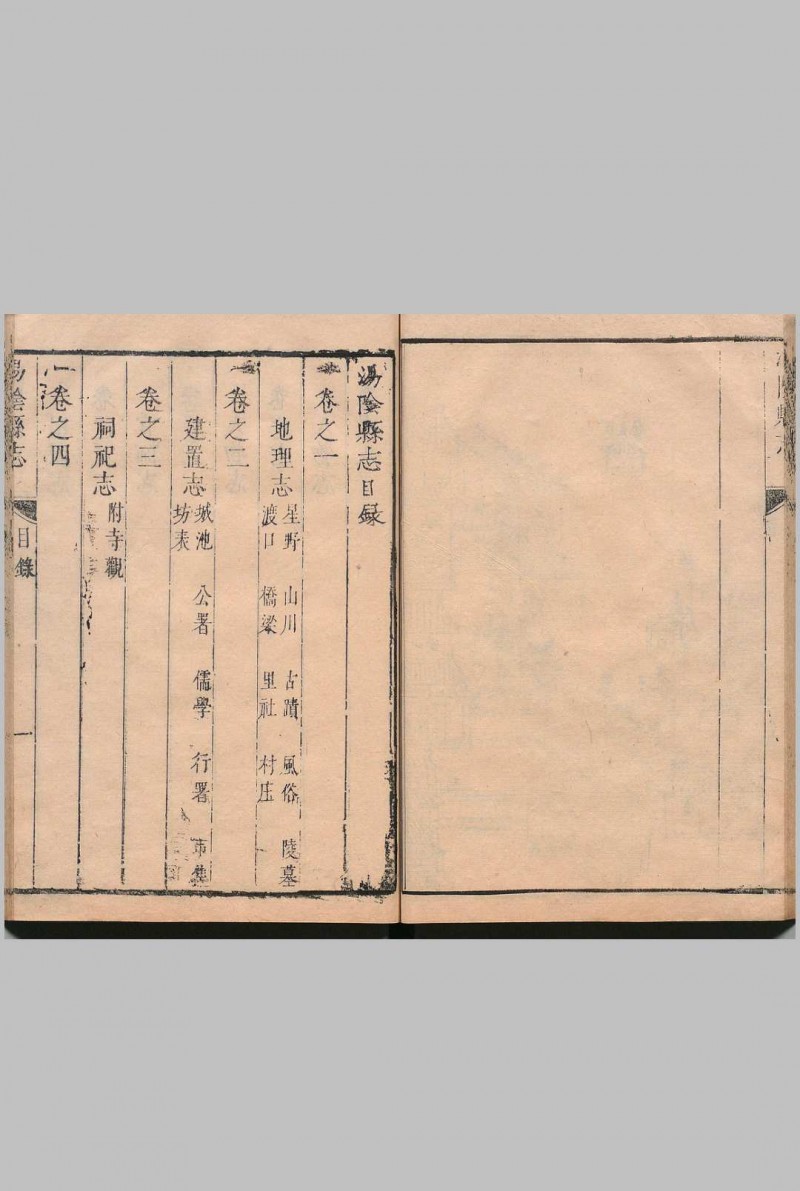 湯陰縣志
湯陰縣志目錄
卷之一
地理志
星野 山川 古蹟 風俗 陵墓
渡口 橋梁 里社 村庄
卷之二
建置志
城池 公署 儒學 行署 市集
坊表
卷之三
祠祀志
附寺觀
卷之四
湯陰縣志 目錄 一